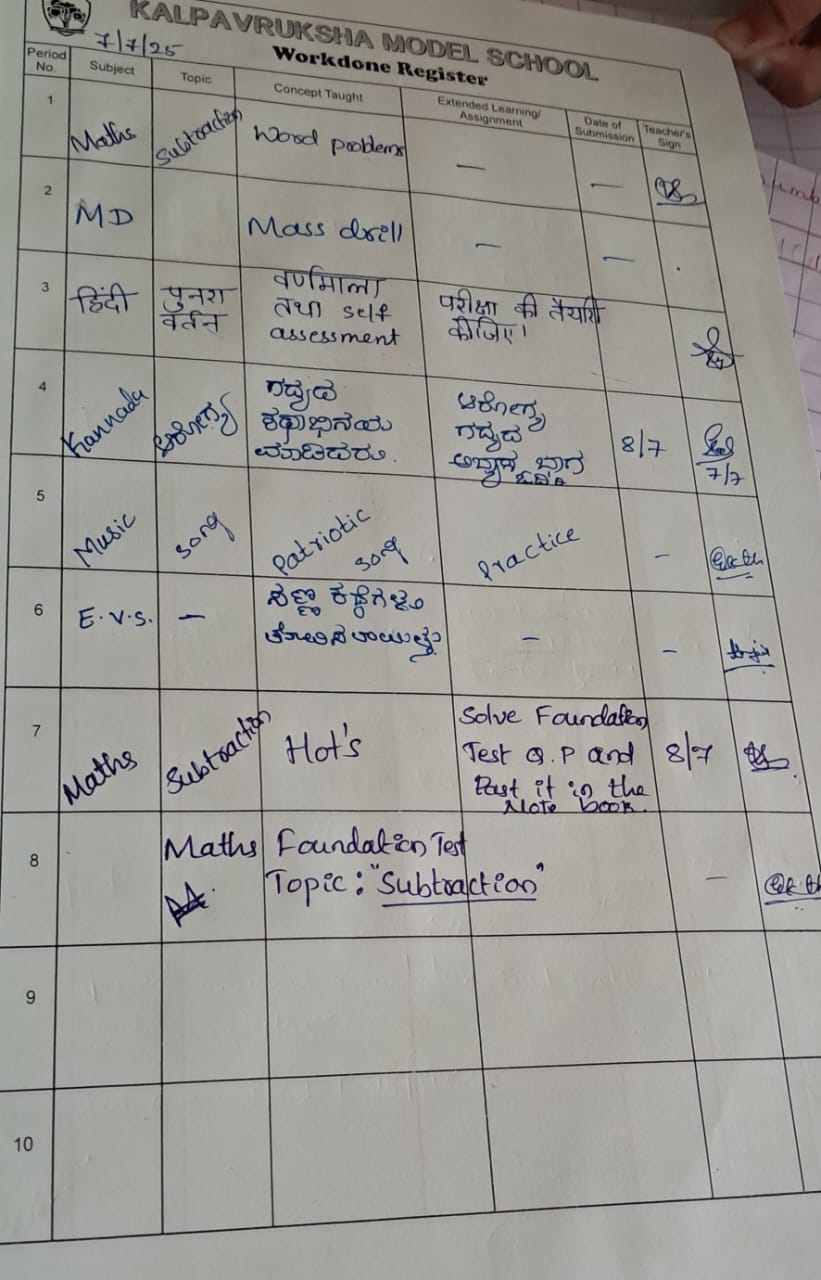 KALPAVRUKSHA MODEL SCHOOL
7/7/25
Workdone Register
Period No. Subject Topic Concept Taught Extended Learning/ Assignment Date of Submission Teacher's Sign
1 Maths Subtraction Word problems — —
2 MD Mass drill — —
3 हिंदी पुनरा वर्तन वर्णमाला तथा self assessment परीक्षा की तैयारी कीजिए।
4 Kannada ಆರೋಗ್ಯ ಗದ್ಯದ ಕಥಾಭಿನಯ ಮಾಡಿದರು. ಆರೋಗ್ಯ ಗದ್ಯದ ಭಾಗ 8/7 7/7
5 Music song Patriotic song Practice –
6 E.V.S. – ಸಣ್ಣ – –
7 Maths Subtraction Hot's Solve Foundation Test Q.P and Past it in the Note book. 8/7
8 Maths Foundation Test
Topic: "Subtraction" –
9
10